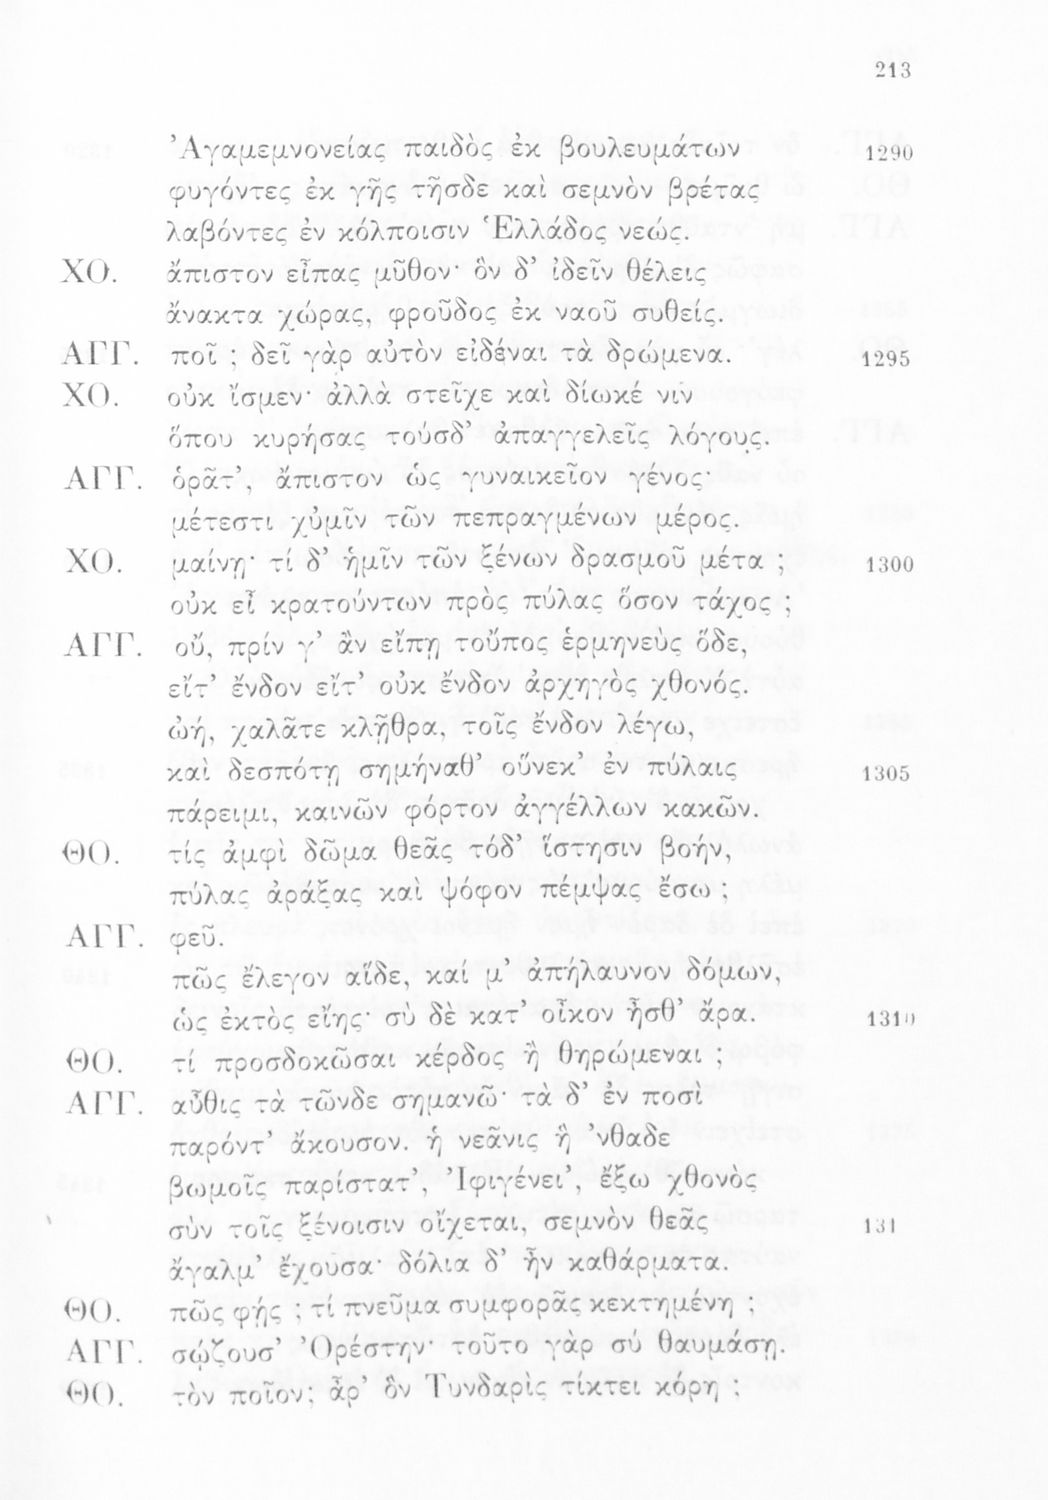 213
Ἀγαμεμνονείας παιδὸς ἐκ βουλευμάτων 1290
φυγόντες ἐκ γῆς τῆσδε καὶ σεμνὸν βρέτας
λαβόντες ἐν κόλποισιν Ἑλλάδος νεώς.
ΧΟ. ἄπιστον εἶπας μῦθον· ὃν δ' ἰδεῖν θέλεις
ἄνακτα χώρας, φροῦδος ἐκ ναοῦ συθείς.
ΑΓΓ. ποῖ ; δεῖ γὰρ αὐτὸν εἰδέναι τὰ δρώμενα. 1295
ΧΟ. οὐκ ἴσμεν· ἀλλὰ στεῖχε καὶ δίωκέ νιν
ὅπου κυρήσας τούσδ' ἀπαγγελεῖς λόγους.
ΑΓΓ. ὁρᾶτ', ἄπιστον ὡς γυναικεῖον γένος·
μέτεστι χὐμῖν τῶν πεπραγμένων μέρος.
ΧΟ. μαίνῃ· τί δ' ἡμῖν τῶν ξένων δρασμοῦ μέτα ; 1300
οὐκ εἶ κρατούντων πρὸς πύλας ὅσον τάχος ;
ΑΓΓ. οὔ, πρίν γ' ἂν εἴπῃ τοὔπος ἑρμηνεὺς ὅδε,
εἴτ' ἔνδον εἴτ' οὐκ ἔνδον ἀρχηγὸς χθονός.
ὠή, χαλᾶτε κλῇθρα, τοῖς ἔνδον λέγω,
καὶ δεσπότῃ σημήναθ' οὕνεκ' ἐν πύλαις 1305
πάρειμι, καινῶν φόρτον ἀγγέλλων κακῶν.
ΘΟ. τίς ἀμφὶ δῶμα θεᾶς τόδ' ἵστησιν βοήν,
πύλας ἀράξας καὶ ψόφον πέμψας ἔσω ;
ΑΓΓ. φεῦ.
πῶς ἔλεγον αἵδε, καί μ' ἀπήλαυνον δόμων,
ὡς ἐκτὸς εἴης· σὺ δὲ κατ' οἶκον ἦσθ' ἄρα. 1310
ΘΟ. τί προσδοκῶσαι κέρδος ἢ θηρώμεναι ;
ΑΓΓ. αὖθις τὰ τῶνδε σημανῶ· τὰ δ' ἐν ποσὶ
παρόντ' ἄκουσον. ἡ νεᾶνις ἣ 'νθαδε
βωμοῖς παρίστατ', Ἰφιγένει', ἔξω χθονὸς
σὺν τοῖς ξένοισιν οἴχεται, σεμνὸν θεᾶς 131
ἄγαλμ' ἔχουσα· δόλια δ' ἦν καθάρματα.
ΘΟ. πῶς φῄς ; τί πνεῦμα συμφορᾶς κεκτημένη ;
ΑΓΓ. σῴζουσ' Ὀρέστην· τοῦτο γὰρ σὺ θαυμάσῃ.
ΘΟ. τὸν ποῖον; ἆρ' ὃν Τυνδαρὶς τίκτει κόρη ;